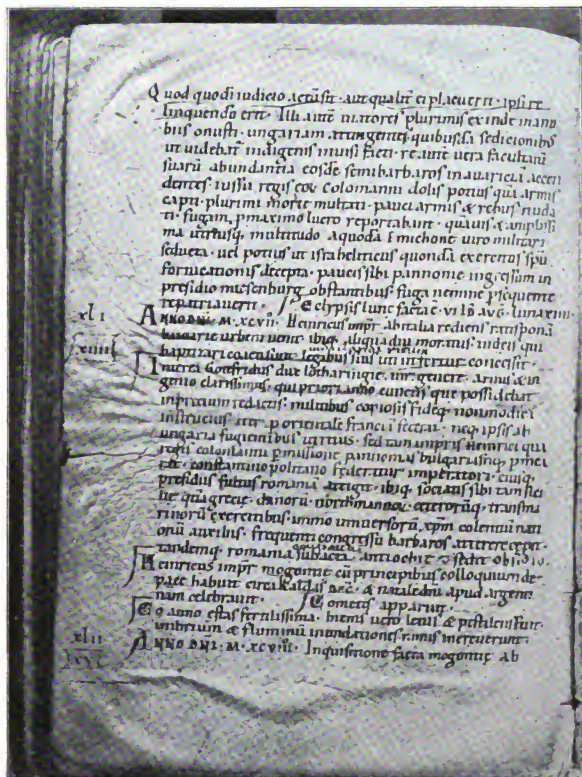 Quod quodā iudicio actūsit · aut qualit̄ ei placuerit · ipsi re
linquendū erit · Illi aut̄ maiores plurimis ex inde manu
biis onusti · ungariam attingentes quibusdā sedicionibꝰ
ut videbat̄ indigenis invisi facti · re aut̄ vera facultatū
suarū abundantia eosdē semibarbaros in avariciā accen
dentes · iussu regis eoꝝ Colomanni dolis potius quā armis
capti · plurimi morte multati · pauci armis & rebus nuda
ti · fugam p maximo lucro reportabant · quāvis & amplissi
ma utriusq; multitudo a quodā Emichone viro militari
seducta · vel potius ut israheliticus quondā exercitus spū
fornicationis decepta · paucis sibi pannonię ingressum in
presidio miesenburg obstantibus · fuga nemine psequente
repatriaverit · Eclypsis lunę facta ē · vi id̄ avḡ · luna xiiii ·
xl i
ANNO DNI · M · XCVII · Heinricus impr̄ ab italia rediens ratisponā
baioarię urbem venit · ibiq; aliquādiu moratus · iudeis qui
xiiii
baptizari coacti sunt · legibus suis uti ut fertur concessit ·
Interea Gotefridus dux lotharingię · vir generē · armis & in
genio clarissimus · qui priori anno cunctis que possidebat
in precium redactis · militibus copiosis fideq; non modica
instructus iter p orientalē franciā fecerat · neq; ipsis ab
ungaria fugientibus territus · sed tam impr̄is Heinrici quā
regis colomanni pmissione pannonias bulgariasq; pmei
Constantinopolitano federatur imperatori · eiusq;
presidiis fultus romaniā attigit · ibiq; sociatis sibi tam
quā grecię · danorū · northmannoꝝ · ceterorūq; transma
rinorū exercitibus · immo universorū xp̄m colentiū nati
onū auxiliis · frequenti congressu barbaros atterere cępit ·
tandemq; romania subacta · antiochię obsidio
Heinricus impr̄ mogontię cū principibus colloquium de
pace habuit circa kl̄das dec̄ · & natale dn̄i apud argenti
nam celebravit · Cometes apparuit ·
Eo anno estas fertilissima · hiems vero levis & pestilens fuit
imbrium & fluminū inundationes nimis increverunt ·
xl ii
ANNO DNI · M · XCVIII · Inquisitione facta mogontię ab